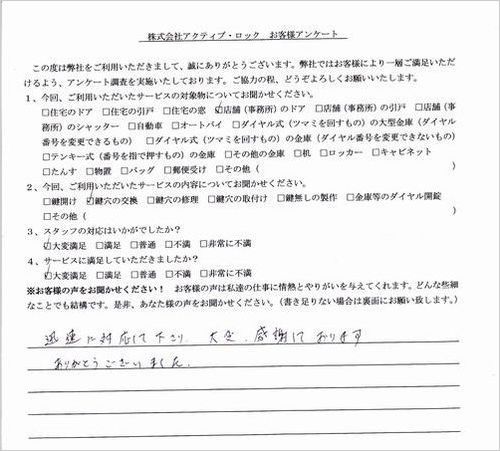 株式会社アクティブ・ロック　お客様アンケート
この度は弊社をご利用いただきまして、誠にありがとうございます。弊社ではお客様により一層ご満足いただ
けるよう、アンケート調査を実施いたしております。ご協力の程、どうぞよろしくお願いいたします。
1、今回、ご利用いただいたサービスの対象物についてお聞かせください。
□住宅のドア　□住宅の引戸　□住宅の窓　☑店舗（事務所）のドア　□店舗（事務所）の引戸　□店舗（事
務所）のシャッター　□自動車　□オートバイ　□ダイヤル式（ツマミを回すもの）の大型金庫（ダイヤル
番号を変更できるもの）　□ダイヤル式（ツマミを回すもの）の金庫（ダイヤル番号を変更できないもの）
□テンキー式（番号を指で押すもの）の金庫　□その他の金庫　□机　□ロッカー　□キャビネット
□たんす　□物置　□バッグ　□郵便受け　□その他（　　　　　）
2、今回、ご利用いただいたサービスの内容についてお聞かせください。
□鍵開け　☑鍵穴の交換　□鍵穴の修理　□鍵穴の取付け　□鍵無しの製作　□金庫等のダイヤル開錠
□その他（　　　　　）
3、スタッフの対応はいかがでしたか？
☑大変満足　□満足　□普通　□不満　□非常に不満
4、サービスに満足していただきましたか？
☑大変満足　□満足　□普通　□不満　□非常に不満
※お客様の声をお聞かせください！　お客様の声は私達の仕事に情熱とやりがいを与えてくれます。どんな些細
なことでも結構です。是非、あなた様の声をお聞かせください。（書き足りない場合は裏面にお願い致します。）
迅速に対応して下さり、大変、感謝しております
ありがとうございました。